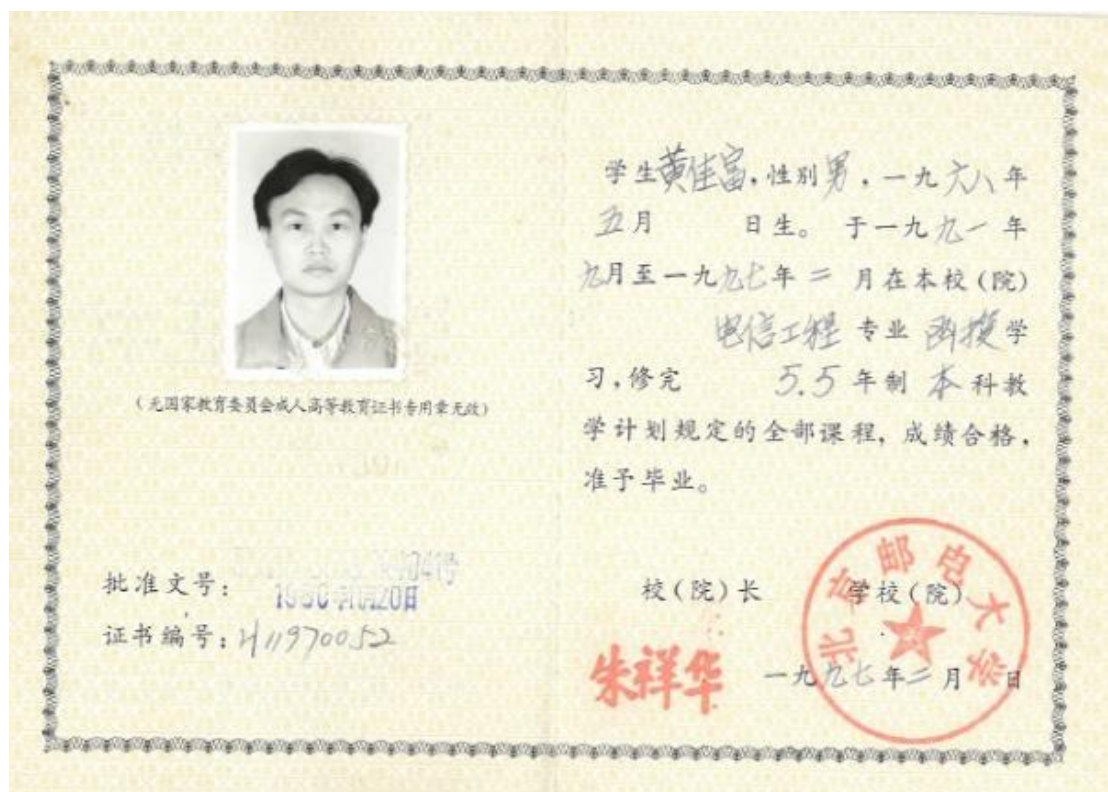 （无国家教育委员会成人高等教育证书专用章无效）
批准文号：
1980年11月20日
证书编号：H11970052
学生黄佳富，性别男，一九六八年
五月 日生。于一九九一年
九月至一九九七年二月在本校（院）
电信工程专业函授学
习，修完 5.5年制本科教
学计划规定的全部课程，成绩合格，
准予毕业。
校（院）长 学校（院）
朱祥华
北京邮电大学
一九九七年二月 日